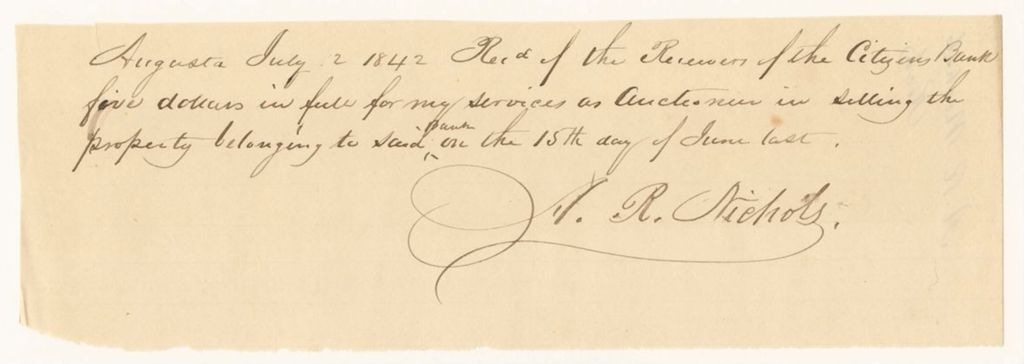 Augusta July 2 1842 Recd of the Receivers of the Citizens Bank
five dollars in full for my services as Auctioneer in selling the
property belonging to said Bank on the 15th day of June last.
A. R. Nichols.